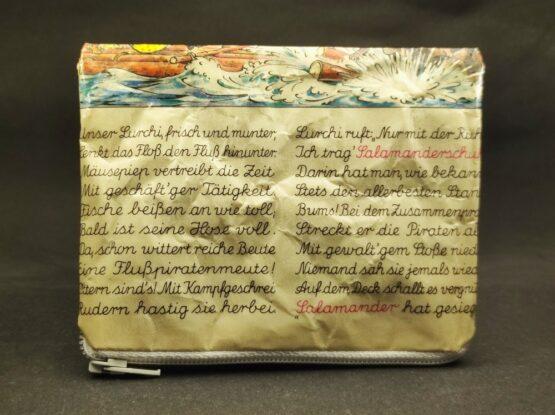 unser Lurchi, frisch und munter,
lenkt das Floß den Fluß hinunter.
Mäusepiep vertreibt die Zeit
Mit geschäft'ger Tätigkeit.
Fische beißen an wie toll;
Bald ist seine Hose voll.
Da, schon wittert reiche Beute
eine Flußpiratenmeute!
Ottern sind's! Mit Kampfgeschrei
Rudern hastig sie herbei.
Lurchi ruft: „Nur mit der Ruh
Ich trag' Salamanderschuh
Darin hat man, wie bekan
Stets den allerbesten Stan
Bums! Bei dem Zusammenpra
Streckt er die Piraten al
Mit gewalt'gem Stoße nied
Niemand sah sie jemals wied
Auf dem Deck schallt es vergnü
„Salamander hat gesieg